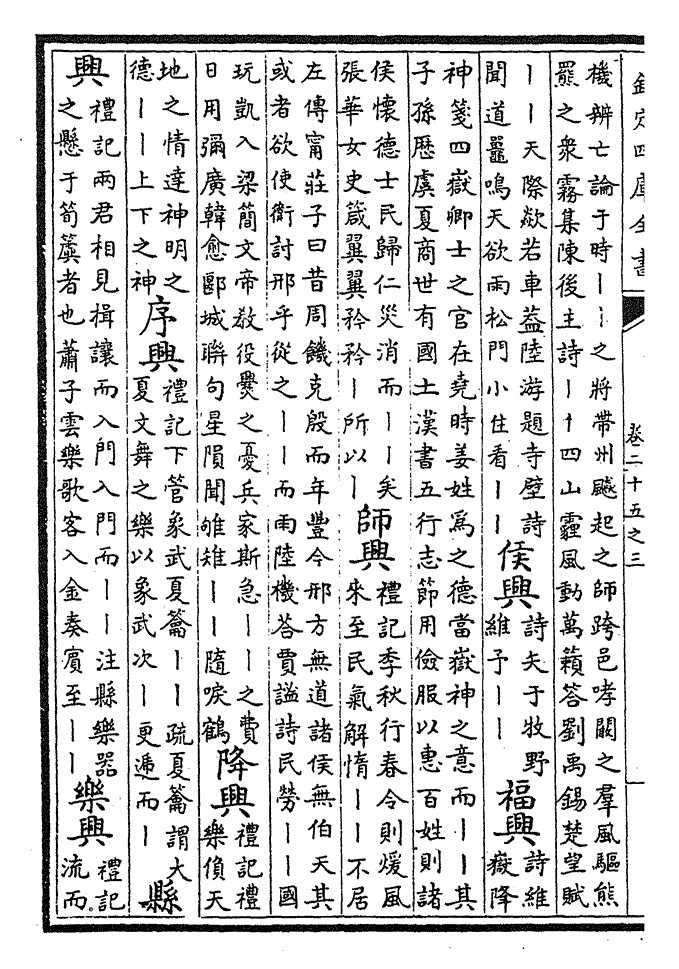 欽定四庫全書
卷二十五之三
機辨亡論于時丨丨之將帶州飈起之師跨邑哮闞之羣風驅熊
羆之衆霧集陳後主詩丨十四山霾風動萬籟答劉禹錫楚望賦
丨丨天際歘若車蓋陸游題寺壁詩
聞道鼉鳴天欲雨松門小住看丨丨
侯興
詩矢于牧野
維予丨丨
福興
詩維
嶽降
神箋四嶽卿士之官在堯時姜姓為之德當嶽神之意而丨丨其
子孫歷虞夏商世有國土漢書五行志節用儉服以惠百姓則諸
侯懷德士民歸仁災消而丨丨矣
張華女史箴翼翼矜矜丨所以丨
師興
禮記季秋行春令則煖風
來至民氣解惰丨丨不居
左傳甯莊子曰昔周饑克殷而年豐今邢方無道諸侯無伯天其
或者欲使衛討邢乎從之丨丨而雨陸機答賈謐詩民勞丨丨國
玩凱入梁簡文帝教役爨之憂兵家斯急丨丨之費
日用彌廣韓愈郾城聯句星隕聞雊雉丨丨隨唳鶴
降興
禮記禮
樂偩天
地之情達神明之
德丨丨上下之神
序興
禮記下管象武夏籥丨丨疏夏籥謂大
夏文舞之樂以象武次丨更遞而丨
縣
興
禮記兩君相見揖讓而入門入門而丨丨注縣樂器
之懸于筍簴者也蕭子雲樂歌客入金奏賓至丨丨
樂興
禮記
流而